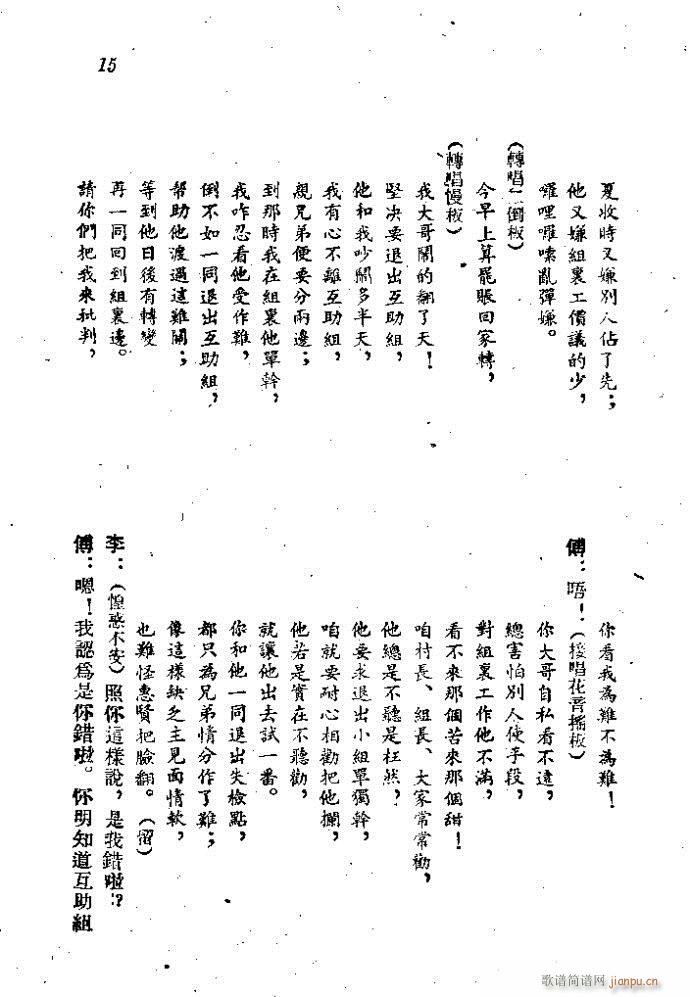 15
夏收時又嫌別人佔了先；
他又嫌組裏工價議的少，
囉哩囉嗦亂彈嫌。
（轉唱二倒板）
今早上算罷賬回家轉，
（轉唱慢板）
我大哥鬧的翻了天！
堅决要退出互助組，
他和我吵鬧多半天，
我有心不離互助組，
親兄弟便要分兩邊；
到那時我在組裏他單幹，
我咋忍看他受作難，
倒不如一同退出互助組，
幫助他渡過這難關；
等到他日後有轉變
再一同回到組裏邊。
請你們把我來批判，
你看我為難不為難！
傅：唔！（接唱花音搖板）
你大哥自私看不遠，
總害怕別人使手段，
對組裏工作他不滿，
看不來那個苦來那個甜！
咱村長、組長、大家常常勸，
他總是不聽是枉然，
他要求退出小組單獨幹，
咱就要耐心相勸把他攔，
他若是實在不聽勸，
就讓他出去試一番。
你和他一同退出失檢點，
都只為兄弟情分作了難；
像這樣缺乏主見面情軟，
也難怪惠賢把臉翻。（留）
李：（惶惑不安）照你這樣說，是我錯啦？
傅：嗯！我認爲是你錯啦。你明知道互助組
歌谱简谱网 jianpu.cn